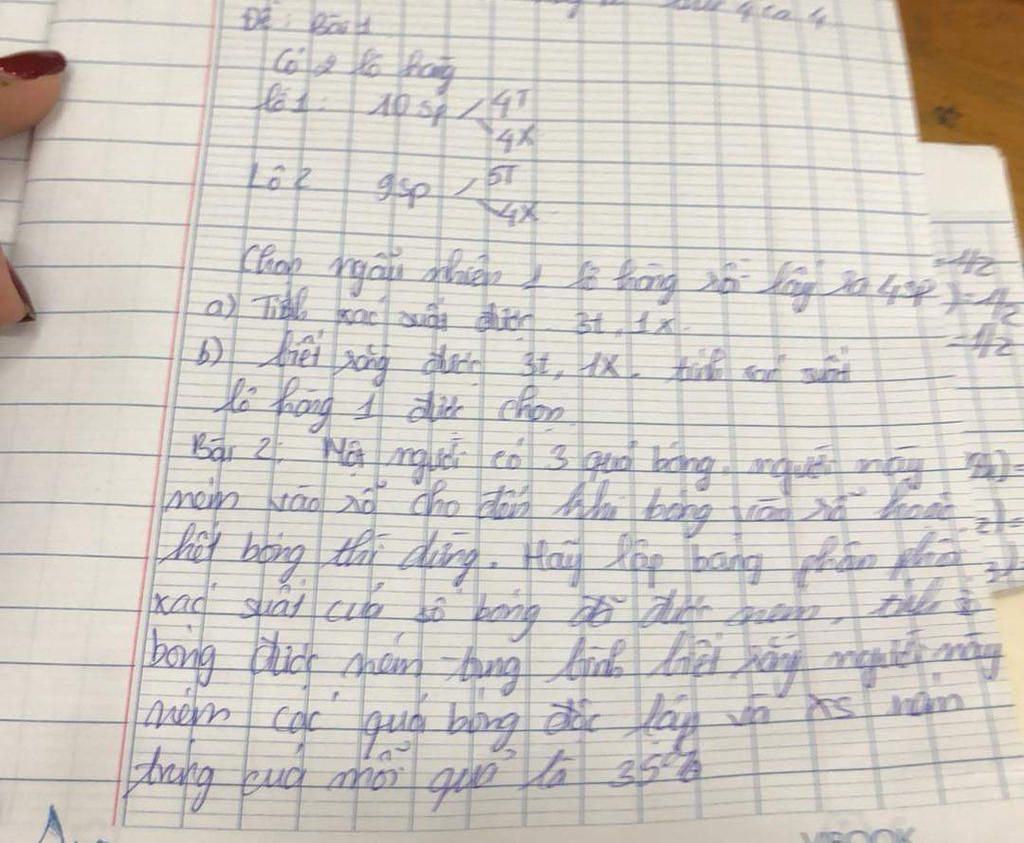 4 ca 4
Đề: Bài 1
Có 2 lô hàng
lô 1: 10 sp 4T
4X
Lô 2 9sp 5T
4X
Chọn ngẫu nhiên 1 lô hàng rồi lấy ra 4sp
a) Tính xác suất được 3t, 1x.
b) biết rằng được 3t, 1X. tính xác suất
lô hàng 1 được chọn
Bài 2: Một người có 3 quả bóng. người này
ném vào rổ cho đến khi bóng vào rổ hoặc
hết bóng thì dừng. Hãy lập bảng phân phối
xác suất của số bóng đã được ném. tính
bóng được ném trung bình biết rằng người này
ném các quả bóng độc lập và XS ném
trúng của mỗi quả là 35%